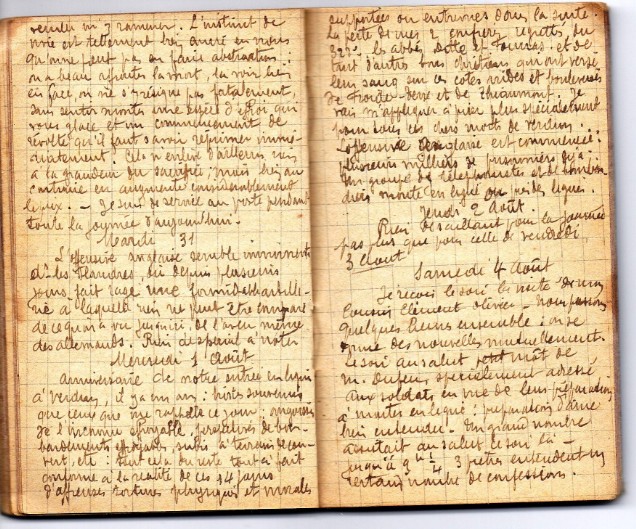 L'instinct de
vivre est tellement bien ancré en nous
qu'on ne peut pas en faire abstraction :
on a beau affronter la mort, la voir bien
en face, on ne s'y résigne pas fatalement,
sans sentir monter une espèce d'effroi qui
vous glace et un commencement de
révolte qu'il faut savoir réprimer immé-
diatement. Cela n'enlève d'ailleurs rien
à la grandeur du sacrifice, mais bien au
contraire en augmente considérablement
le prix. — Je suis de service au poste pendant
toute la journée d'aujourd'hui.
Mardi 31
L'offensive anglaise semble imminente
ds les Flandres, où depuis plusieurs
jours fait rage une formidable artille-
rie à laquelle rien ne peut être comparé
de ce qu'on a vu jusqu'ici, de l'aveu même
des allemands. Rien de spécial à noter
Mercredi 1 Août
Anniversaire de notre entrée en ligne
à Verdun, il y a un an : tristes souvenirs
que ceux que me rappelle ce jour : angoisses
de l'inconnu effroyable, perspectives de bom-
bardements effroyables, subis à terrain décou-
vert, etc : tout cela du reste tout à fait
conforme à la réalité de ces 14 jours
d'affreuses tortures physiques et morales
supportées ou entrevues dans la suite.
La perte de mes 2 confrères du
les abbés et et de
tant d'autres bons chrétiens qui ont versé
leur sang sur ces côtes arides et bouleversées
de Froide-Terre et de Thiaumont. Je
vais m'appliquer à prier plus spécialement
pour tous les chers morts de Verdun.
L'offensive anglaise est commencée :
plusieurs milliers de prisonniers déjà.
Un groupe de téléphonistes et de
monte en ligne
Jeudi 2 Août.
Rien de saillant pour la journée
pas plus que pour celle de vendredi
3 Août
Samedi 4 Août
Je reçois le soir la visite de mon
cousin Clément Olivier. Nous passons
quelques heures ensemble : on se
donne des nouvelles mutuellement.
Le soir au salut mot de
M. Dufeu, spécialement adressé
aux soldats, en vue de leur préparation
à monter en ligne : préparation d'âme
bien entendu. Un grand nombre
assistait au salut ce soir là —
Jusqu'à 9h 1/4 3 prêtres entendent un
certain nombre de confessions.